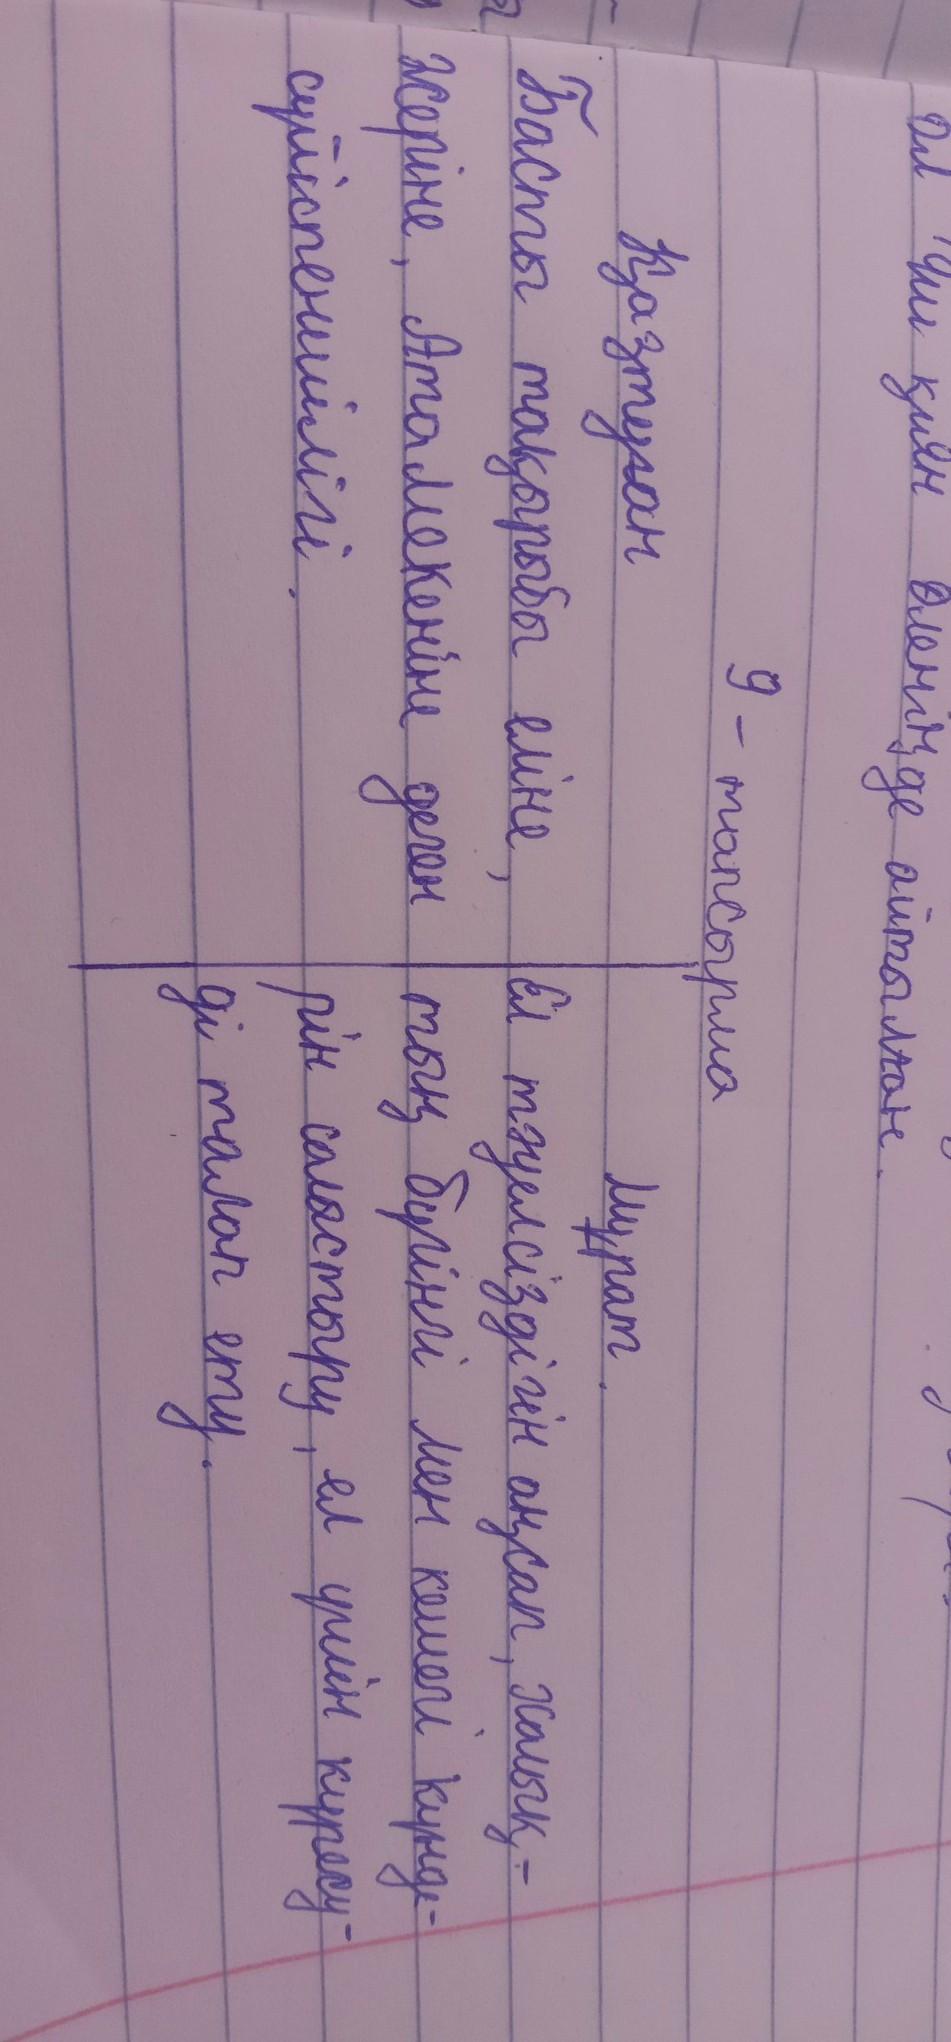 Үш қиян өлеңінде айтылған.
9 - тапсырма
Қазтуған
Мұрат.
Басты тақырыбы еліне,
жеріне, Атамекеніне деген
сүйіспеншілігі.
Ел тәуелсіздігін аңсап, халық-
тың бүгінгі мен кешегі күнде-
рін салыстыру, ел үшін күресу-
ді талап ету.